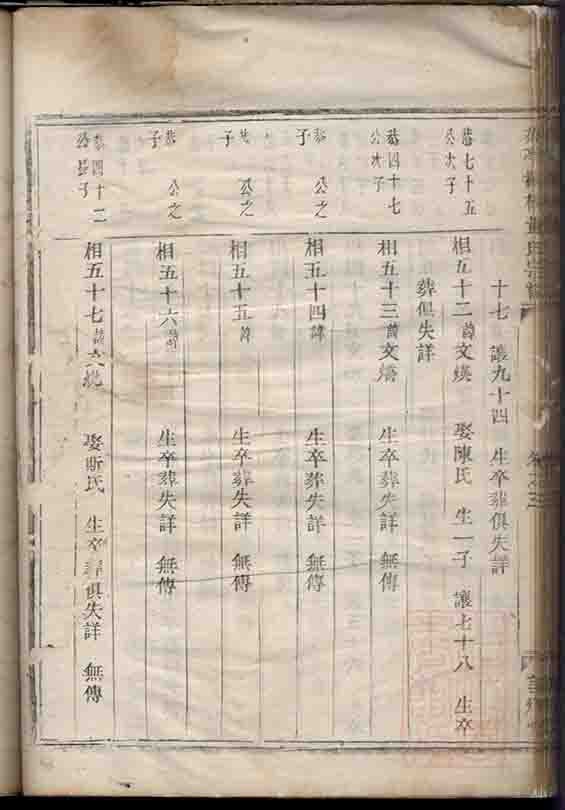 十七 讓九十四 生卒葬俱失詳
恭七十五
公次子
相五十二諱文煐 娶陳氏 生一子 讓七十八 生卒
葬俱失詳
恭四十七
公次子
相五十三諱文 生卒葬失詳 無傳
恭 公之
子
相五十四諱 生卒葬失詳 無傳
恭 公之
子
相五十五諱 生卒葬失詳 無傳
恭 公之
子
相五十六諱 生卒葬失詳 無傳
恭四十二
公長子
相五十七諱文 娶斯氏 生卒葬俱失詳 無傳